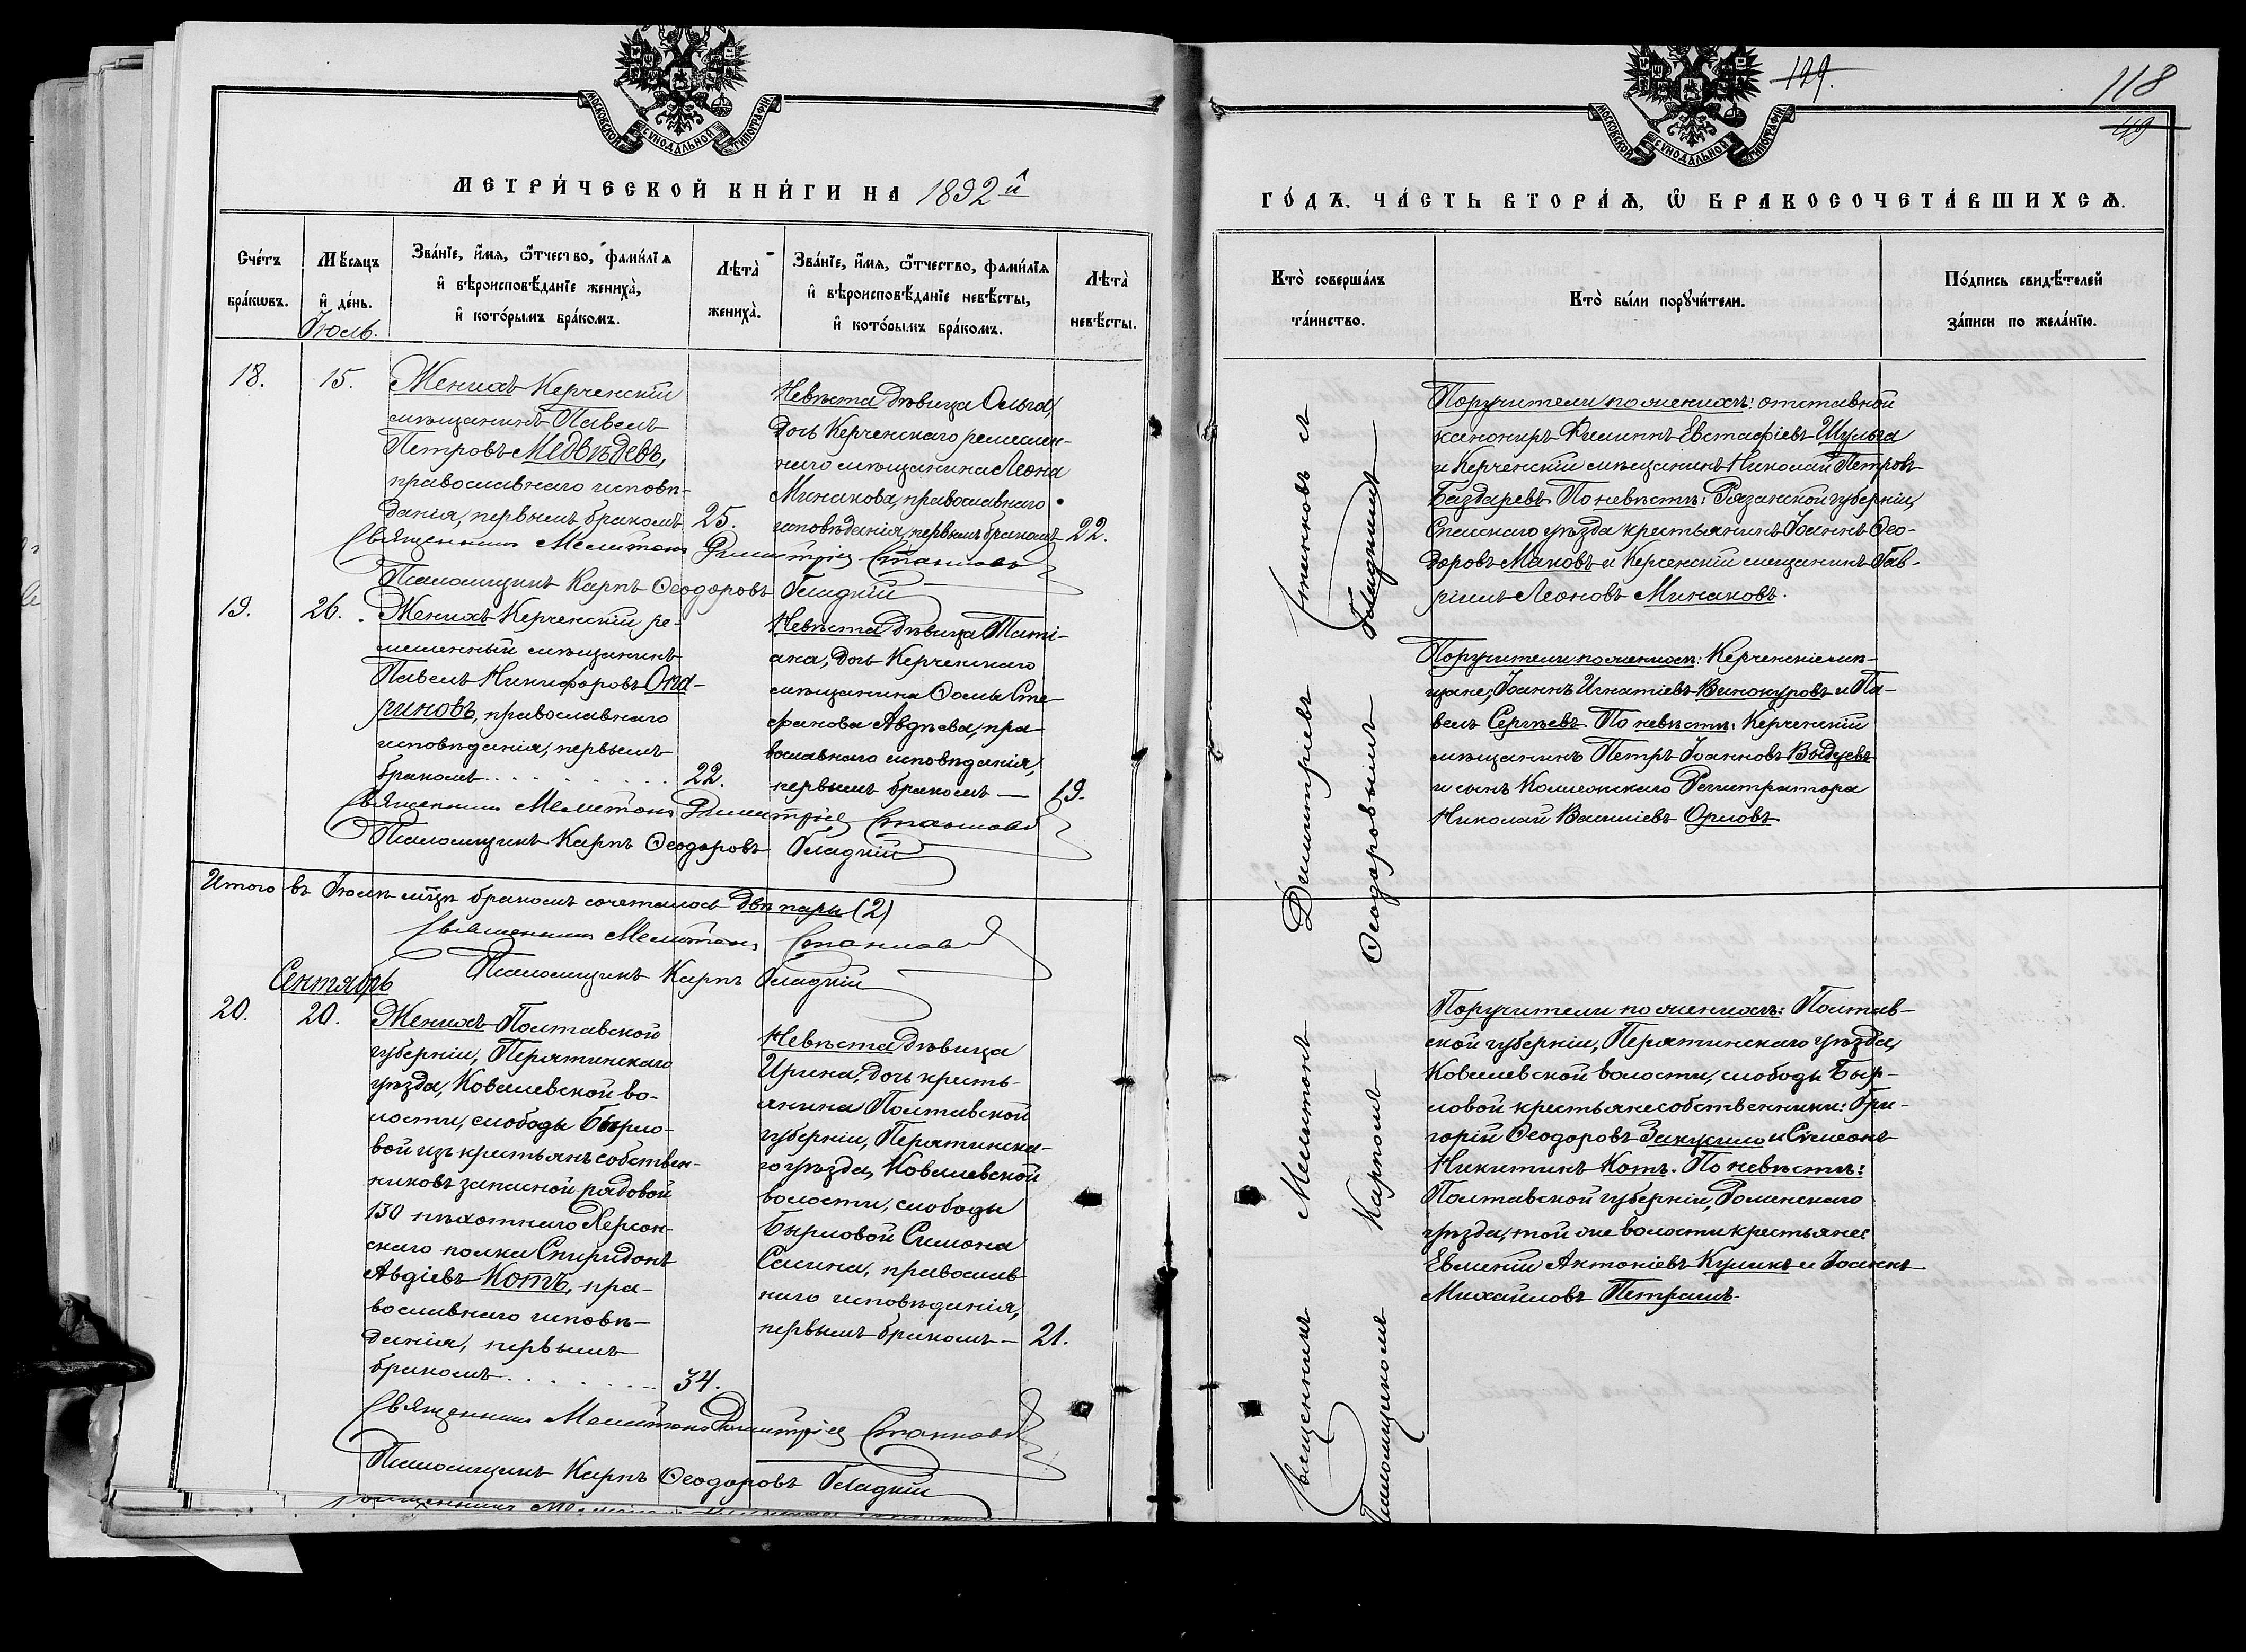 МОСКОВСКОЙ СѴНОДАЛЬНОЙ ТИПОГРАФІИ
МЕТРИ́ЧЕСКОЙ КНИ́ГИ НА 1892 й
Сче́тъ бра́кωвъ.
Мѣ́сяцъ и҆ де́нь.
Іюль.
Зва́нїе, и҆́мя, ѻ҆́тчество, фами́лїя
и҆ вѣроисповѣ́данїе жениха̀,
и҆ кото́рымъ бра́комъ.
Лѣта̀ жениха̀.
Зва́нїе, и҆́мя, ѻ҆́тчество, фами́лїя
и҆ вѣроисповѣ́данїе невѣ́сты,
и҆ кото́рымъ бра́комъ.
Лѣта̀ невѣ́сты.
18.
15.
Женихъ Керченскій
мѣщанинъ Павелъ
Петровъ Медвѣдевъ,
православнаго исповѣ-
данія, первымъ бракомъ
25.
Невѣста дѣвица Ольга,
дочь Керченскаго ремеслен-
наго мѣщанина Леона
Минакова, православнаго
исповѣданія, первымъ бракомъ
22.
Священникъ Мелитонъ Димитріев Станков
Псаломщикъ Карпъ Ѳеодоровъ Гладкій
19.
26.
Женихъ Керченскій ре-
месленный мѣщанинъ
Павелъ Никифоровъ Опа-
риновъ, православнаго
исповѣданія, первымъ
бракомъ
22.
Невѣста дѣвица Таті-
ана, дочь Керченскаго
мѣщанина Ѳомы Сте-
фанова Авдѣева, пра-
вославнаго исповѣданія,
первымъ бракомъ —
19.
Священникъ Мелитонъ Димитріев Станков
Псаломщикъ Карпъ Ѳеодоровъ Гладкій
Итого въ Іюлѣ мцѣ бракомъ сочеталось двѣ пары (2)
Священникъ Мелитонъ Станков
Псаломщикъ Карпъ Гладкій
Сентябрь
20.
20.
Женихъ Полтавской
губерніи, Пирятинскаго
уѣзда, Ковалевской во-
лости, слободы Бырло-
вой изъ крестьянъ собствен-
никовъ запасной рядовой
130 пѣхотнаго Херсон-
скаго полка Спиридонъ
Авдіевъ Котъ, пра-
вославнаго исповѣ-
данія, первымъ
бракомъ
34.
Невѣста дѣвица
Ирина, дочь кресть-
янина Полтавской
губерніи, Пирятинска-
го уѣзда, Ковалевской
волости, слободы
Бырловой Симона
православ-
наго исповѣданія,
первымъ бракомъ —
21.
Священникъ Мелитонъ Димитріев Станков
Псаломщикъ Карпъ Ѳеодоровъ Гладкій
129.
118
49
МОСКОВСКОЙ СѴНОДАЛЬНОЙ ТИПОГРАФІИ
ГО́ДЪ. ЧА́СТЬ ВТОРА́Ѧ, Ѡ҆ БРАКОСОЧЕТА́ВШИХСѦ.
Кто̀ соверша́лъ
та́инство.
Кто̀ бы́ли порꙋчи́тели.
По́дпись свидѣ́телей
за́писи по жела́нїю.
Священникъ Мелитонъ Димитріевъ Станковъ съ
Псаломщикомъ Карпомъ Ѳеодоровымъ Гладкимъ
Поручители по женихѣ: отставной
канониръ Филиппъ Евстафіевъ Шульга
и Керченскій мѣщанинъ Николай Петровъ
Баздаревъ. По невѣстѣ: Рязанской губерніи,
Спасскаго уѣзда крестьянинъ Іоаннъ Ѳео-
доровъ Маковъ и Керченскій мещанинъ Гав-
ріилъ Леоновъ Минаковъ.
Поручители по женихѣ: Керченскіе мѣ-
щане, Іоаннъ Игнатіевъ Винокуровъ и Па-
велъ Сергѣевъ. По невѣстѣ: Керченскій
мѣщанинъ Петръ Іоанновъ
и сынъ Коллежскаго Регистратора
Николай Василіевъ Орловъ.
Поручители по женихѣ: Полтав-
ской губерніи, Пирятинскаго уѣзда,
Ковалевской волости, слободы Быр-
ловой крестьяне собственники: Гри-
горій Ѳеодоровъ Закусило и Симеонъ
Никитинъ Котъ. По невѣстѣ:
Полтавской губерніи, Роменскаго
уѣзда, той же волости крестьяне:
Евменій Антоніевъ Куликъ и Іоаннъ
Михайловъ Петрашъ.